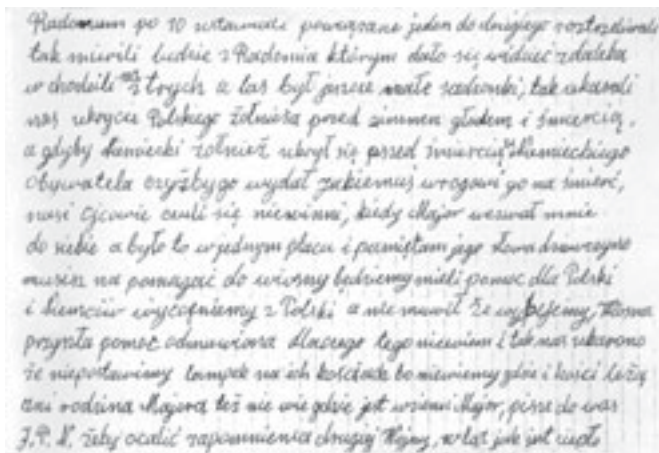 Radomiem po 10 ustawiali powiązane jeden do drugiego rozstrzeliwali
tak mówili ludzie z Radomia którym dało się widzieć z daleka
wchodzili na strych a las był jeszcze małe sadzonki, tak ukarali
nas ukrycie Polskiego żołnierza przed zimnem głodem i śmiercią.
a gdyby Niemiecki żołnierz ukrył się przed śmiercią u Niemieckiego
Obywatela czyżby go wydał jakiemuś wrogowi go na śmierć,
nasi Ojcowie czuli się niewinni, kiedy Major wezwał mnie
do siebie a było to w jednym placu i pamiętam jego słowa dziewczyno
musisz na pomagać do wiosny będziemy mieli pomoc dla Polski
i Niemców wyciągniemy z Polski a nie mówił że wybijemy, Wiosna
przyszła pomoc odmówiona dlaczego tego niewiem i tak nas ukarano
że niepostawimy lampek na ich kościach bo niewiemy gdzie i kości leżą
ani rodzina Majora też nie wie gdzie jest Major, piszę do was
I.P.N. żeby ocalić zapomnienia drugiej Wojny, w las jak jest ciepło